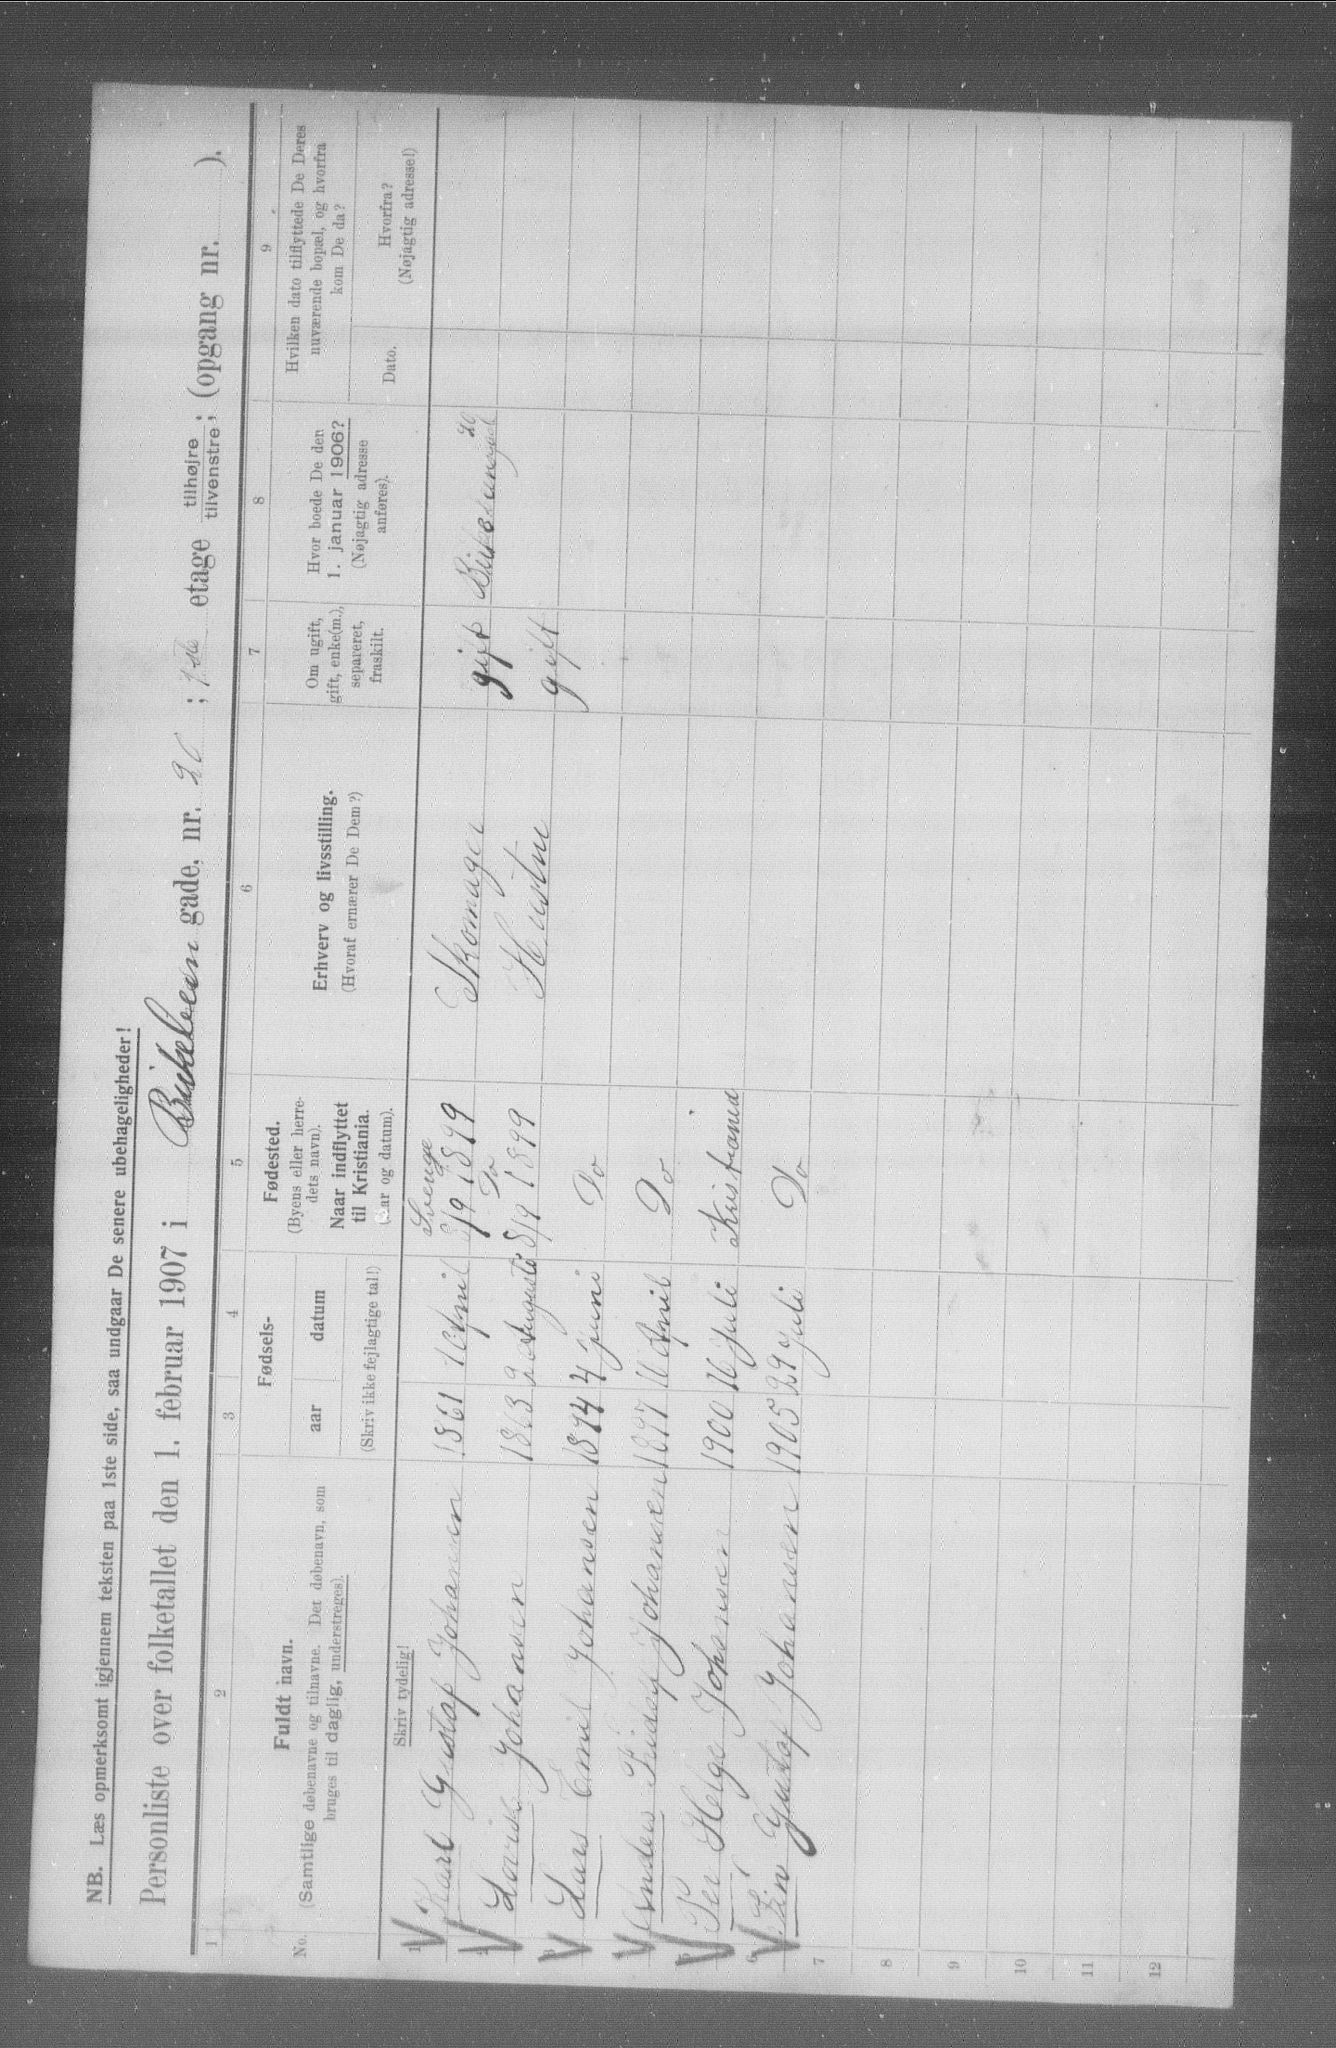 NB. Læs opmerksomt igjennem teksten paa 1ste side, saa undgaar De senere ubehageligheder!
Personliste over folketallet den 1. februar 1907 i Birkebeiner gade, nr. 26 ; 1ste etage tilhøjre tilvenstre; (opgang nr. ).
1 2 3 4 5 6 7 8 9
No.
Fuldt navn.
(Samtlige døbenavne og tilnavne. Det døbenavn, som
bruges til daglig, understreges).
Skriv tydelig!
Fødsels-
aar datum
(Skriv ikke fejlagtige tal!)
Fødested.
(Byens eller herre-
dets navn).
Naar indflyttet
til Kristiania.
(Aar og datum).
Erhverv og livsstilling.
(Hvoraf ernærer De Dem?)
Om ugift,
gift, enke(m.),
separeret,
fraskilt.
Hvor boede De den
1. januar 1906?
(Nøjagtig adresse
anføres).
Hvilken dato tilflyttede De Deres
nuværende bopæl, og hvorfra
kom De da?
Dato.
Hvorfra?
(Nøjagtig adresse!)
1 Karl Gustaf Johansen 1861 16 April Sverige 8/9 1899 Skomager gift 26
2 Lovise Johansen 1863 2 Augusti Do 8/9 1899 Hustru gift
3 Lars Emil Johansen 1894 4 juni Do
4 Anders Johansen 1897 11 April Do
5 Per Helge Johansen 1900 16 Juli Kristiania
6 Gustaf Johansen 1905 29 Juli Do
7
8
9
10
11
12